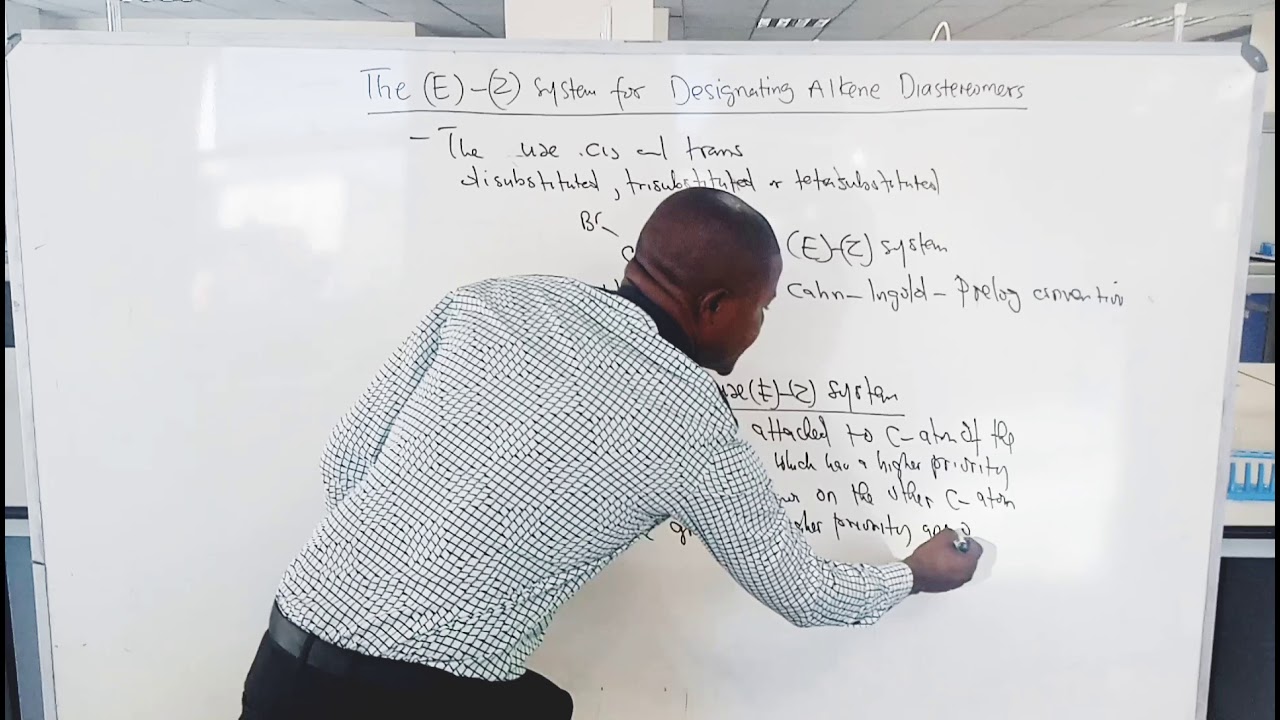 The (E)-(Z) system for Designating Alkene Diastereomers
- The use cis and trans
disubstituted, trisubstituted or tetrasubstituted
Br
(E)-(Z) system
Cahn-Ingold-Prelog convention
use (E)-(Z) system
attached to C-atom of the
which has a higher priority
on the other C-atom
higher priority